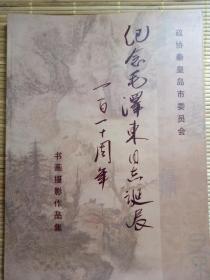 政协秦皇岛市委员会
纪念毛泽東同志诞辰
一百一十周年
书画摄影作品集